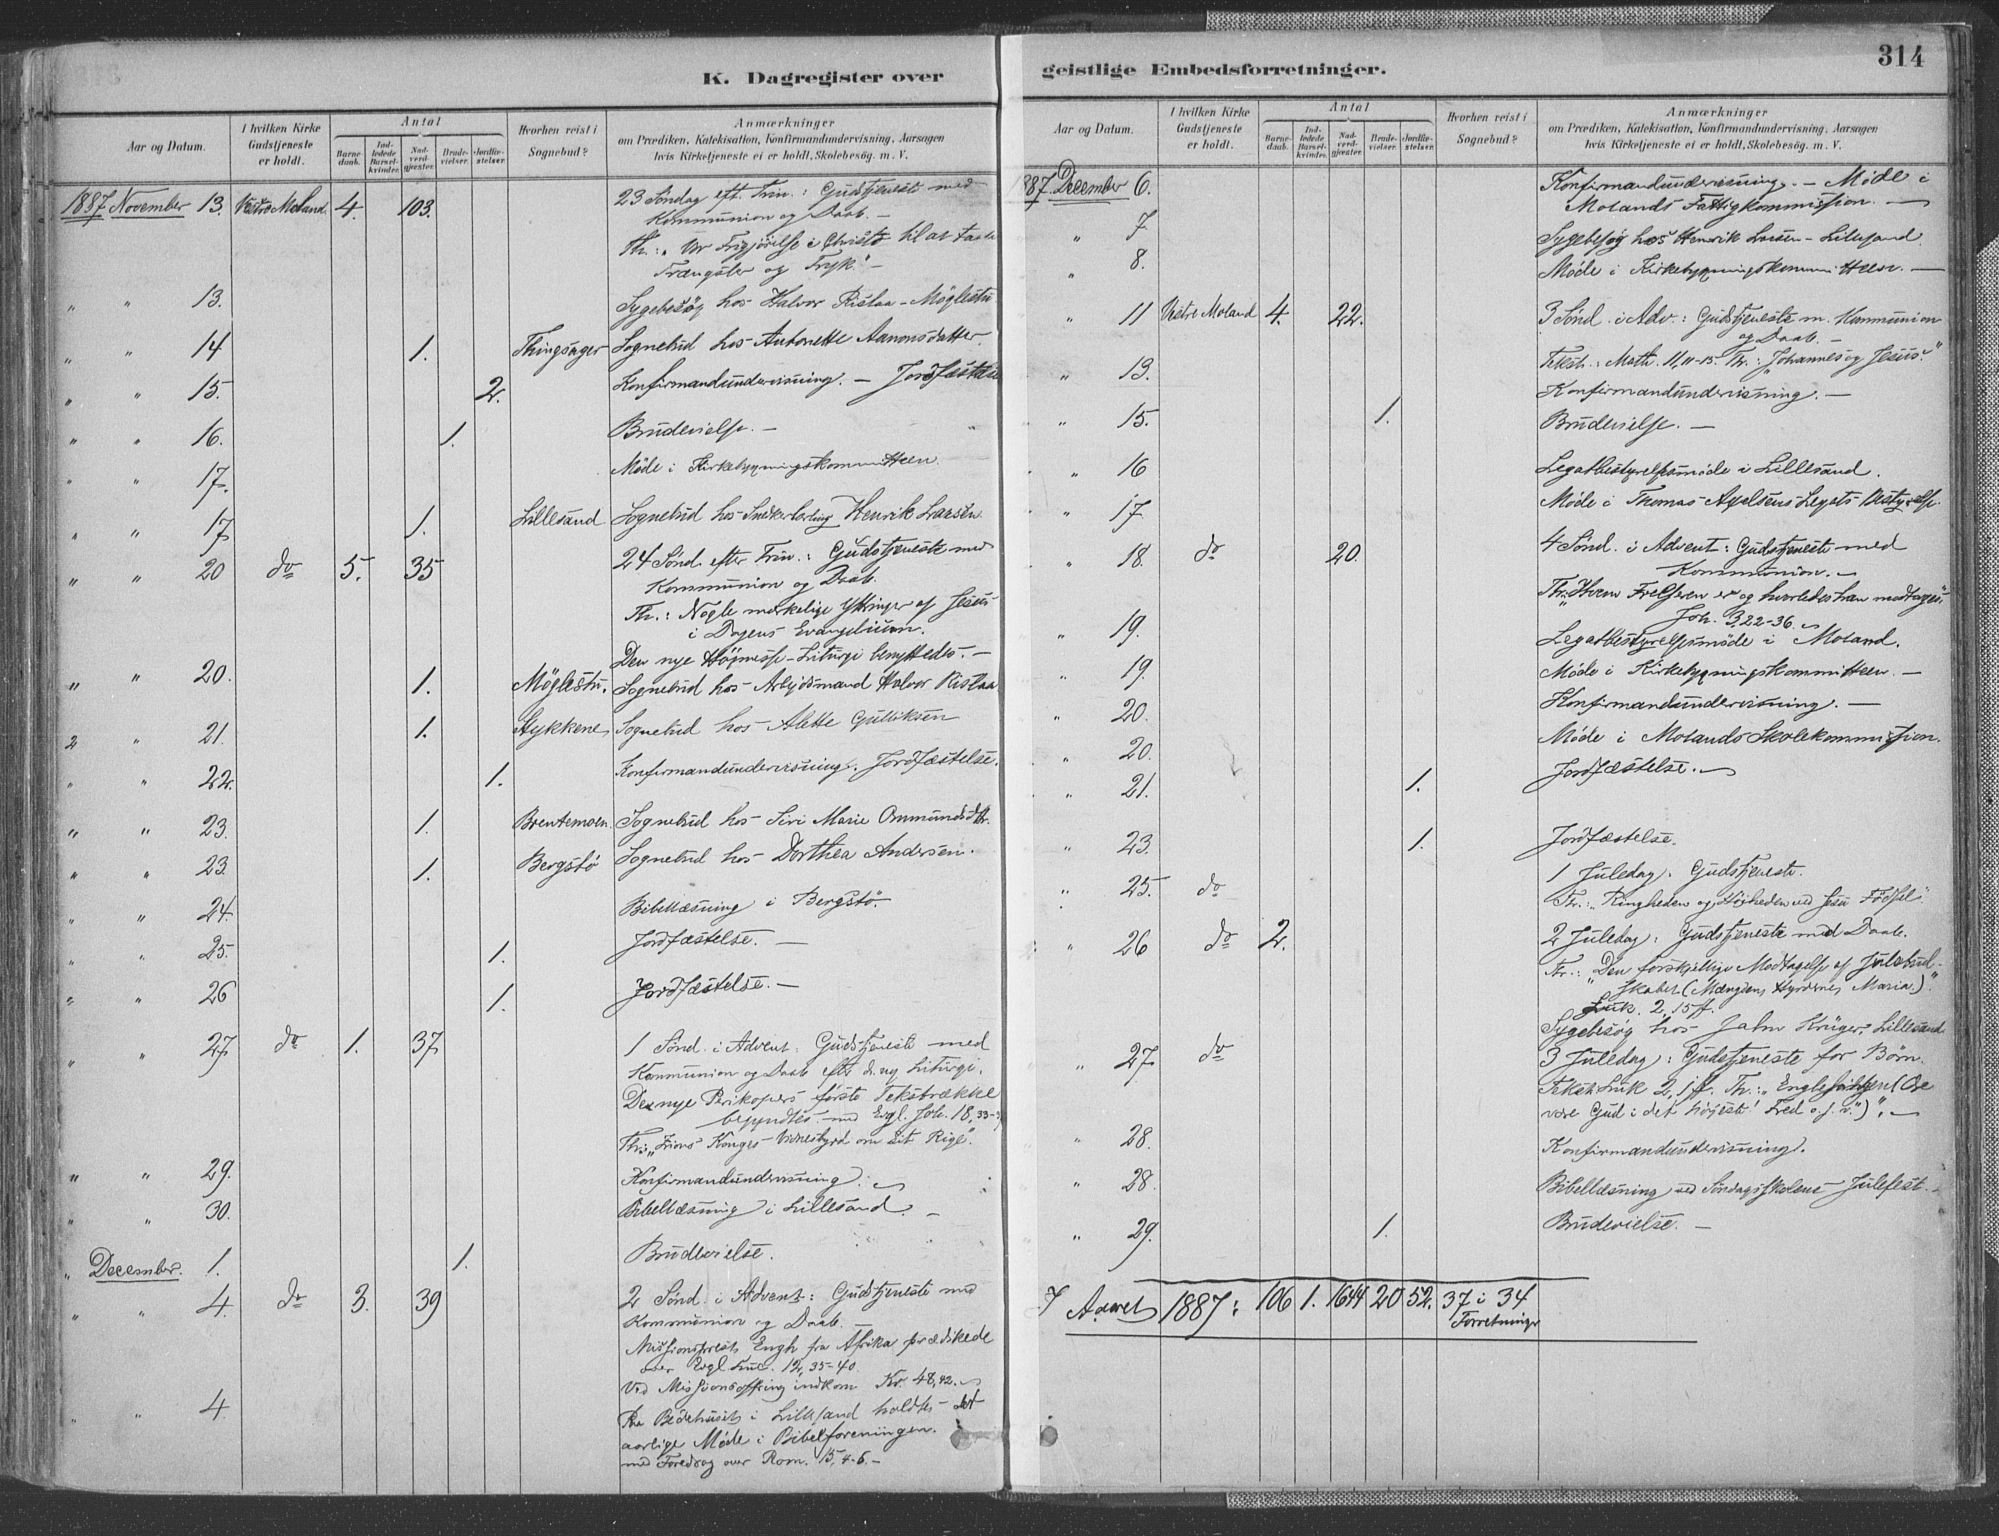 K. Dagregister over
Aar og Datum.
I hvilken Kirke Gudstjeneste er holdt.
Antal
Barnedaab.
Indledede Barselkvinder.
Nadverdgjester.
Brudevielser.
Jordfæstelser.
Hvorhen reist i Sognebud?
Anmærkninger
om Prædiken, Katekisation, Konfirmandundervisning, Aarsagen
hvis Kirketjeneste ei er holdt, Skolebesøg. m. V.
1887 November 13. Vestre Moland 4. 103. 23 Søndag eft. Trin.: Gudstjeneste med
Kommunion og Daab. —
Th.: "Vor Frigjørelse i Christo til at taale
Trængsler og Tryk." —
" " 13. Sygebesøg hos Halvor Rislaa - Møglestu
" " 14 1. Thingsager Sognebud hos Antonette Aanonsdatter.
" " 15. 2. Konfirmandundervisning. — Jordfæstelse
" " 16. 1. Brudevielse. —
" " 17. Møde i Kirkebygningskommitteen.
" " 17 1. Lillesand Sognebud hos Snekkerlærling Henrik Larsen
" " 20 do 5. 35 24 Sønd. efter Trin.: Gudstjeneste med
Kommunion og Daab.
Th.: Nogle merkelige Yttringer af Jesus
i Dagens Evangelium.
Den nye Høimesse-Liturgi benyttedes. —
" " 20. 1. Møglestu. Sognebud hos Arbejdsmand Halvor Rislaa
" " 21. 1. Stykkene Sognebud hos Alette Gulliksen
" " 22. 1. Konfirmandundervisning. Jordfæstelse.
" " 23. 1. Brentemoen Sognebud hos Siri Marie Ommundsdtr.
" " 23. 1. Bergstø Sognebud hos Dorthea Andersen.
" " 24. Bibellæsning i Bergstø
" " 25. 1. Jordfæstelse. —
" " 26 1. Jordfæstelse. —
" " 27 do 1. 37 1 Sønd. i Advent. Gudstjeneste med
Kommunion og Daab efter d. ny Liturgi.
Den nye Perikopers første Tekstrække
begyndtes med Evgl. Joh. 18, 33-
Th.: "Zions Konges Vidnesbyrd om sit Rige".
" " 29. Konfirmandundervisning.
" " 30. Bibellæsning i Lillesand. —
" December. 1. 1. Brudevielse.
" " 4. do 3. 39 2 Sønd. i Advent: Gudstjeneste med
Kommunion og Daab. —
Missionsprest Engh fra Afrika prædikede
over Evgl. Luc. 12, 35-40
Ved Missionsoffring indkom Kr. 48,42.
" " 4 Paa Bedehuset i Lillesand holdtes det
aarlige Møde i Bibelforeningen.
med Foredrag over Rom. 15, 4-6. —
geistlige Embedsforretninger.
314
Aar og Datum.
I hvilken Kirke Gudstjeneste er holdt.
Antal
Barnedaab.
Indledede Barselkvinder.
Nadverdgjester.
Brudevielser.
Jordfæstelser.
Hvorhen reist i Sognebud?
Anmærkninger
om Prædiken, Katekisation, Konfirmandundervisning, Aarsagen
hvis Kirketjeneste ei er holdt, Skolebesøg. m. V.
1887 December 6. Konfirmandundervisning. — Møde i
Molands Fattigkommission. —
" 7 Sygebesøg hos Henrik Larsen - Lillesand.
" 8. Møde i Kirkebygningskommitteen. —
" 11 Vestre Moland 4. 22. 3 Sønd. i Adv.: Gudstjeneste m. Kommunion
og Daab. —
Tekst: Math. 11, 11-15. Th.: "Johannes og Jesus."
" 13. Konfirmandundervisning. —
" 15. 1. Brudevielse. —
" 16 Legatbestyrelsesmøde i Lillesand.
" 17. Møde i Thomas Axelsens Legats Bestyrelse.
" 18. do 20. 4 Sønd. i Advent: Gudstjeneste med
Kommunion. —
Th.: "Hvem Frelseren er og hvorledes han modtages".
Joh. 3, 22-36.
" 19. Legatbestyrelsesmøde i Moland.
" 19. Møde i Kirkebygningskommitteen. —
" 20. Konfirmandundervisning. —
" 20. Møde i Molands Skolekommission.
" 21. 1. Jordfæstelse. —
" 23. 1. Jordfæstelse.
" 25. do 1 Juledag: Gudstjeneste.
Th.: "Ringheden og Høiheden ved Jesu Fødsel"
" 26 do 2. 2 Juledag: Gudstjeneste med Daab.
Th.: "Den forskjellige Modtagelse af Julebud-
skabet (Mængden, Hyrderne, Maria.)"
Luk. 2, 15 ff.
Sygebesøg hos Krüger, Lillesand
" 27. do 3 Juledag: Gudstjeneste for Børn.
Tekst: Luk 2, 1 ff. Th.: "Englehilsen (Ære
være Gud i det høieste! Fred o. s. v.)". —
" 28. Konfirmandundervisning.
" 28. Bibellæsning ved Søndagsskolens Julefest. —
" 29. 1. Brudevielse. —
I Aaret 1887: 106 1. 1644 20 52. 37 i 34
Forretninger